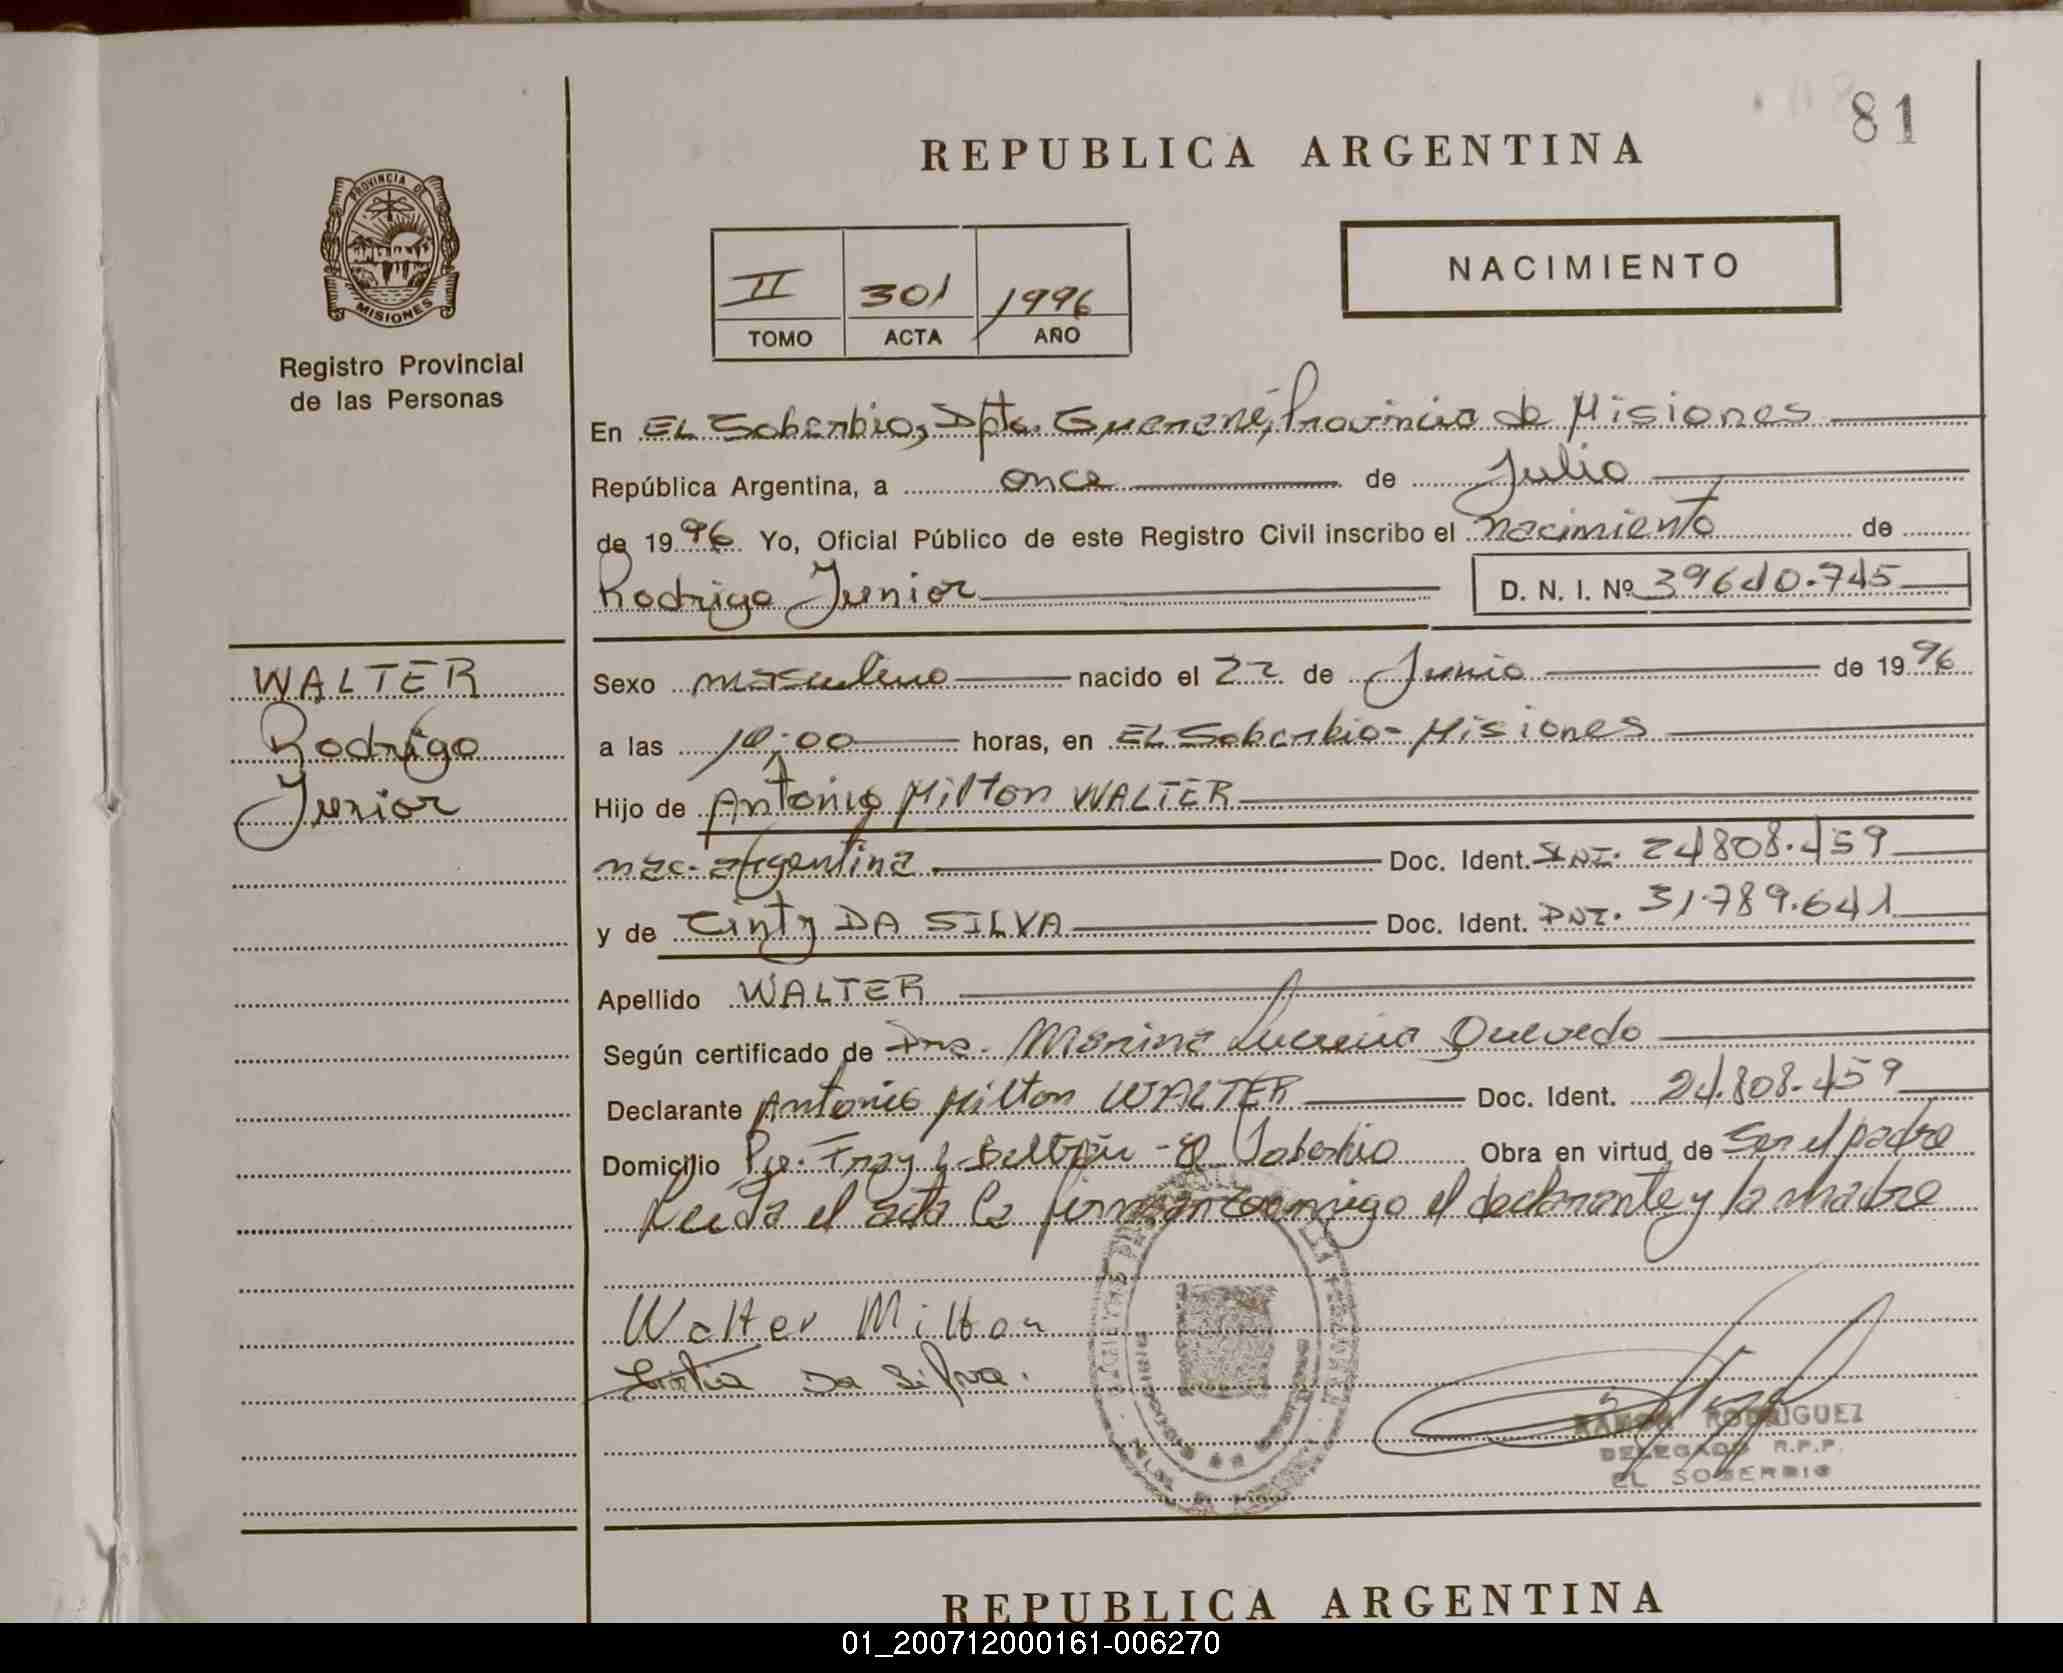 81
REPUBLICA ARGENTINA
PROVINCIA DE
MISIONES
Registro Provincial
de las Personas
II 301 1996
TOMO ACTA AÑO
NACIMIENTO
En EL Soberbio, Dpto. Guaraní, Provincia de Misiones
República Argentina, a once de Julio
de 1996 Yo, Oficial Público de este Registro Civil inscribo el nacimiento de
Rodrigo Junior D. N. I. Nº 39640.745
WALTER
Rodrigo
Junior
Sexo masculino nacido el 22 de Junio de 1996
a las 10:00 horas, en EL Soberbio - Misiones
Hijo de Antonio Milton WALTER
nac. argentina Doc. Ident. DNI. 24808.459
y de DA SILVA Doc. Ident. DNI. 31.789.641
Apellido WALTER
Según certificado de Dra. Marina Lucrecia Quevedo
Declarante Antonio Milton WALTER Doc. Ident. 24.808.459
Domicilio Fray L. Beltrán - El Soberbio Obra en virtud de Ser el padre
Leida el acta la firman conmigo el declarante y la madre
Walter Milton
Da Silva.
RAMON RODRIGUEZ
DELEGADO R.P.P.
EL SOBERBIO
REPUBLICA ARGENTINA
01_200712000161-006270